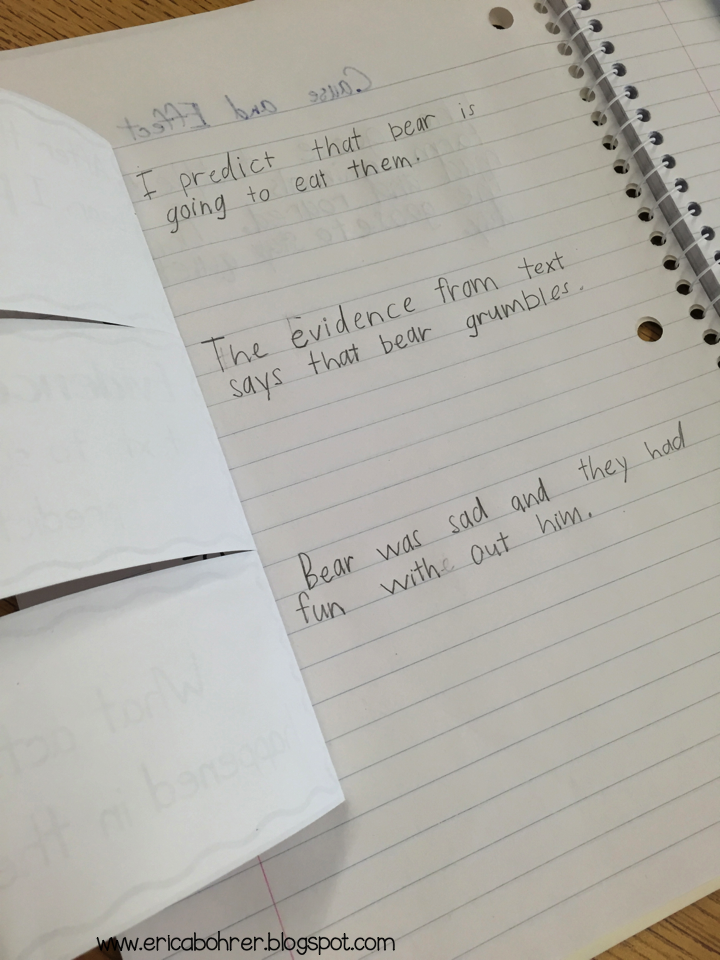 Cause and Effect
I predict that bear is
going to eat them.
The evidence from text
says that bear grumbles.
Bear was sad and they had
fun with out him.
What act
appened in the
www.ericabohrer.blogspot.com